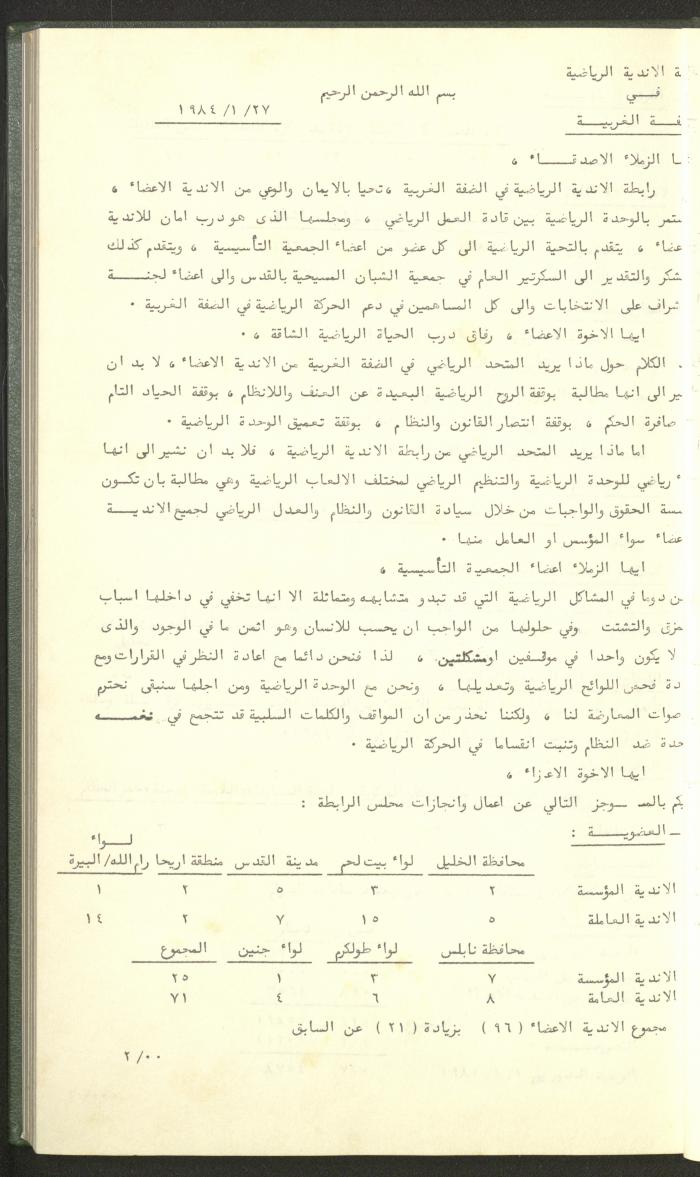 ة الاندية الرياضية
فـــي
بسم الله الرحمن الرحيم
١٩٨٤/١/٢٧
فـــة الغربيـــة
ـا الزملاء الاصدقـــاء ،
رابطة الاندية الرياضية في الضفة الغربية ، تحيا بالايمان والوعي من الاندية الاعضاء ،
ستمر بالوحدة الرياضية بين قادة العمل الرياضي ، ومجلسها الذى هو درب امان للاندية
عضاء ، يتقدم بالتحية الرياضية الى كل عضو من اعضاء الجمعية التأسيسية ، ويتقدم كذلك
شكر والتقدير الى السكرتير العام في جمعية الشبان المسيحية بالقدس والى اعضاء لجنـــة
شراف على الانتخابات والى كل المساهمين في دعم الحركة الرياضية في الضفة الغربية .
ايها الاخوة الاعضاء ، رفاق درب الحياة الرياضية الشاقة ، .
الكلام حول ماذا يريد المتحد الرياضي في الضفة الغربية من الاندية الاعضاء ، لا بد ان
ير الى انها مطالبة بوقفة الروح الرياضية البعيدة عن العنف واللانظام ، بوقفة الحياد التام
صافرة الحكم ، بوقفة انتصار القانون والنظام ، بوقفة تعميق الوحدة الرياضية .
اما ماذا يريد المتحد الرياضي من رابطة الاندية الرياضية ، فلا بد ان نشير الى انها
ء رياضي للوحدة الرياضية والتنظيم الرياضي لمختلف الالعاب الرياضية وهي مطالبة بان تكـون
سسة الحقوق والواجبات من خلال سيادة القانون والنظام والعدل الرياضي لجميع الانديـــة
عضاء سواء المؤسس او العامل منها .
ايها الزملاء اعضاء الجمعية التأسيسية ،
ـن دوما في المشاكل الرياضية التي قد تبدو متشابهه ومتماثلة الا انها تخفي في داخلها اسباب
مزق والتشتت وفي حلولها من الواجب ان يحسب للانسان وهو اثمن ما في الوجود والذى
لا يكون واحدا في موقفين او مشكلتين ، لذا فنحن دائما مع اعادة النظر في القرارات ومع
دة فحص اللوائح الرياضية وتعديلها ، ونحن مع الوحدة الرياضية ومن اجلها سنبقى نحترم
صوات المعارضة لنا ، ولكننا نحذر من ان المواقف والكلمات السلبية قد تتجمع في نغمـــه
حدة ضد النظام وتنبت انقساما في الحركة الرياضية .
ايها الاخوة الاعزاء ،
يكم بالمـــوجز التالي عن اعمال وانجازات مجلس الرابطة :
ـ العضويـــة :
لـــواء
محافظة الخليل لواء بيت لحم مدينة القدس منطقة اريحا رام الله/البيرة
الاندية المؤسسة ٢ ٣ ٥ ٢ ١
الاندية العاملة ٥ ١٥ ٧ ٢ ١٤
محافظة نابلس لواء طولكرم لواء جنين المجموع
الاندية المؤسسة ٧ ٣ ١ ٢٥
الاندية العامة ٨ ٦ ٤ ٧١
مجموع الاندية الاعضاء (٩٦) بزيادة (٢١) عن السابق
٢/٠٠